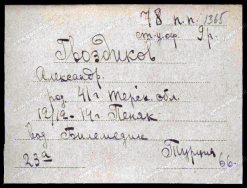 78 п.п. 1365
ст. у.оф. 9 р.
Гвоздиков
Александр.
род. 41 г. Терек. обл.
12/12-14 г. Пеняк
род Билемедик
Турция
23а 66.